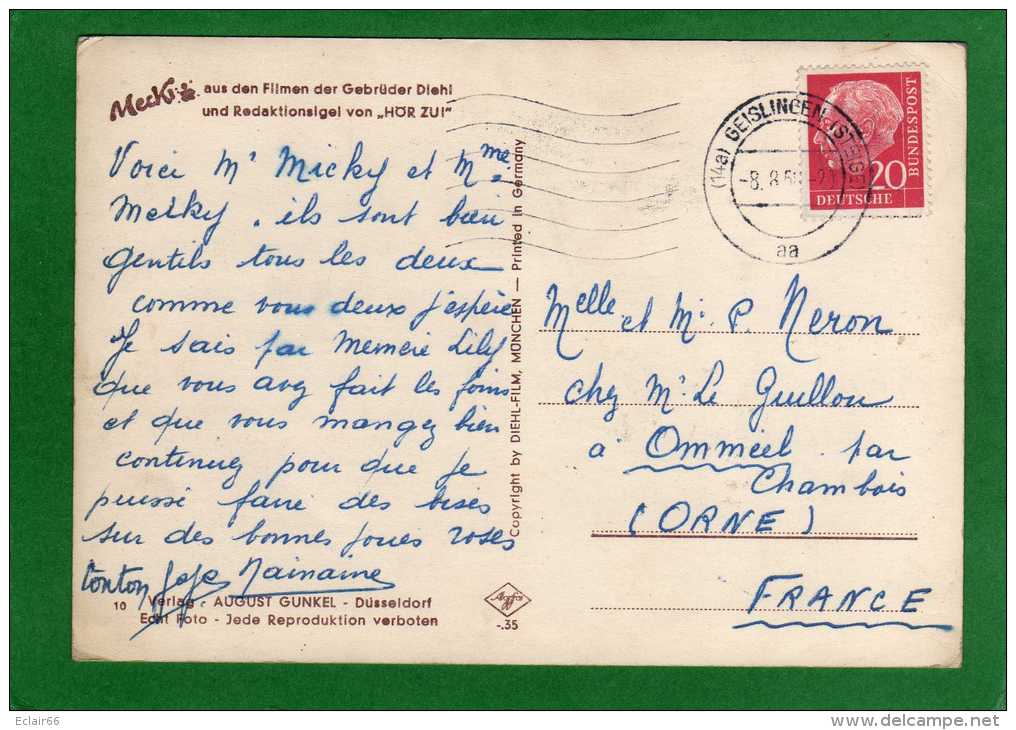 Mecki aus den Filmen der Gebrüder Diehl
und Redaktionsigel von „HÖR ZU!"
Voici Mr Micky et Mme
Meiky. ils sont bien
gentils tous les deux
comme vous deux j'espère
Je sais par Mémère Lily
que vous avez fait les foins
et que vous mangez bien
continuez pour que je
puisse faire des bises
sur des bonnes joues roses
tonton Jojo Nainaine
10 Verlag - AUGUST GUNKEL - Düsseldorf
Echt Foto - Jede Reproduktion verboten
Copyright by DIEHL-FILM, MÜNCHEN — Printed in Germany
Agfa
-.35
(14a) GEISLINGEN (STEIGE)
-8. 8.5
aa
20
DEUTSCHE
BUNDESPOST
Melle et Mr. P. Neron
chez Mr Le Guillou
à Ommeel par
Chambois
(ORNE)
FRANCE
Eclair66
www.delcampe.net